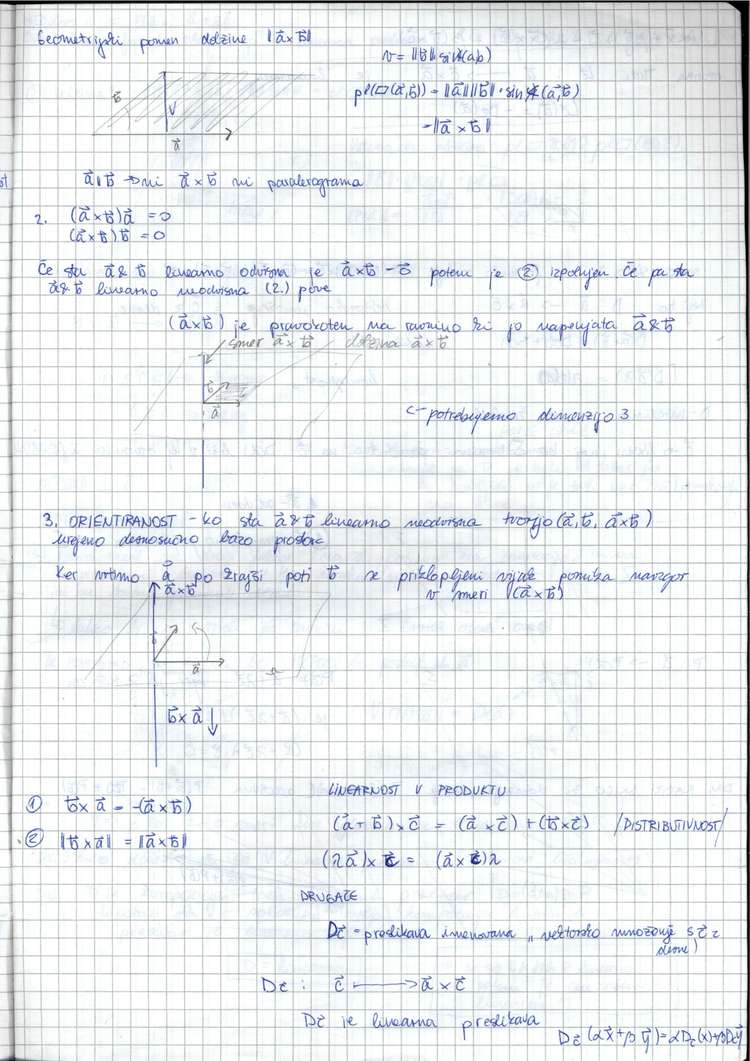 Geometrijski pomen dolžine ‖a⃗×b⃗‖
v = ‖b⃗‖ sin∢(a,b)
b⃗ v a⃗
pl(▱(a⃗,b⃗)) = ‖a⃗‖‖b⃗‖ · sin∢(a⃗,b⃗)
= ‖a⃗ × b⃗‖
a⃗ ∥ b⃗ → ni a⃗ × b⃗ ni paralelograma
2. (a⃗×b⃗)a⃗ = 0
(a⃗×b⃗)b⃗ = 0
Če sta a⃗ & b⃗ linearno odvisna je a⃗×b⃗ = 0⃗ potem je ② izpolnjen. Če pa sta
a⃗ & b⃗ linearno neodvisna (2.) pove
(a⃗×b⃗) je pravokoten na ravnino ki jo napenjata a⃗ & b⃗
smer a⃗×b⃗ dolžina a⃗×b⃗
b⃗
a⃗
← potrebujemo dimenzijo 3
3. ORIENTIRANOST - ko sta a⃗ & b⃗ linearno neodvisna tvorijo (a⃗, b⃗, a⃗×b⃗)
urejeno desnosučno bazo prostora
Ker vrtimo a⃗ po krajši poti b⃗ se priklopljeni vijak pomika navzgor
v smeri (a⃗×b⃗)
a⃗×b⃗
a⃗
b⃗×a⃗ ↓
① b⃗×a⃗ = -(a⃗×b⃗)
② ‖b⃗×a⃗‖ = ‖a⃗×b⃗‖
LINEARNOST V PRODUKTU
(a⃗+b⃗)×c⃗ = (a⃗×c⃗)+(b⃗×c⃗) /DISTRIBUTIVNOST/
(λa⃗)×c⃗ = (a⃗×c⃗)λ
DRUGAČE
Dc⃗ = preslikava imenovana „vektorsko množenje s c⃗ z
desne)
Dc⃗ : c⃗ ⟼ a⃗×c⃗
Dc⃗ je linearna preslikava
Dc⃗(αx⃗+βy⃗)=αDc⃗(x)+βDc⃗y⃗